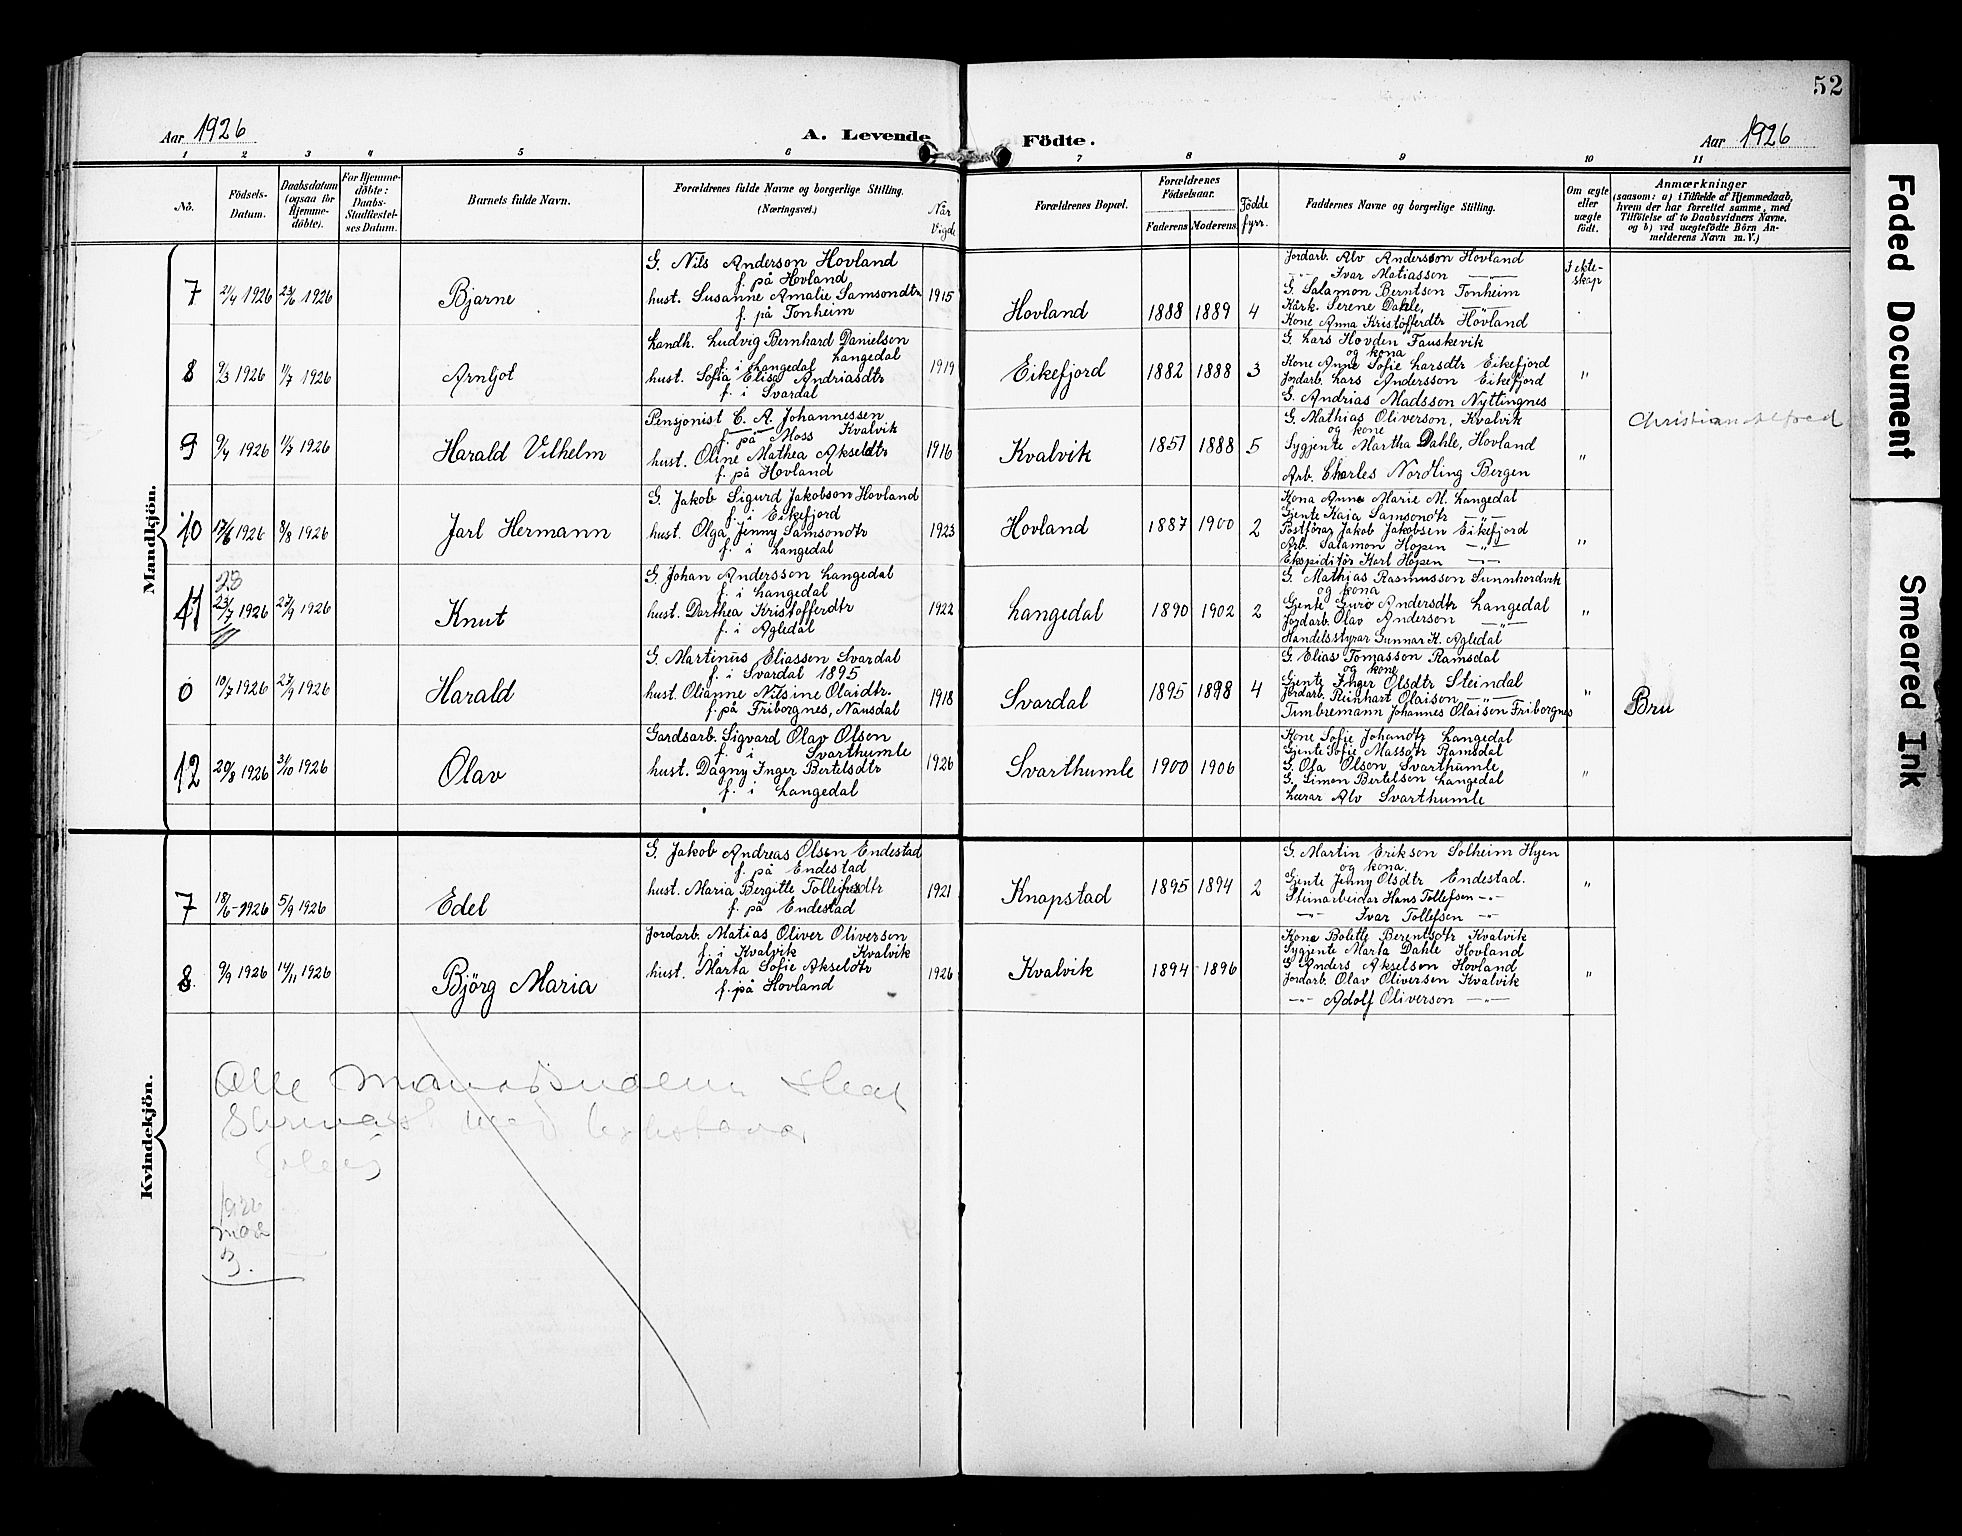 52
Aar 1926
A. Levende
Födte.
Aar 1926
1 2 3 4 5 6 7 8 9 10 11
No.
Födsels-
Datum.
Daabsdatum
(ogsaa för
Hjemme-
døbte).
For Hjemme-
døbte:
Daabs-
Stadfæstel-
ses Datum.
Barnets fulde Navn.
Forældrenes fulde Navne og borgerlige Stilling.
(Næringsvei.)
Når
Vigde
Forældrenes Bopæl.
Forældrenes
Födselsaar.
Faderens Moderens
Födde
fyrr.
Faddernes Navne og borgerlige Stilling.
Om ægte
eller
uægte
födt.
Anmærkninger
(saasom: a) i Tilfælde af Hjemmedaab,
hvem der har forrettet samme, med
Tilföielse af to Daabsvidners Navne,
og b) ved uægtefödte Börn An-
melderens Navn m. V.)
Mandkjön.
7
21/4 1926
23/6 1926
Bjarne
G. Nils Anderson Hovland
f. på Hovland
hust. Susanne Amalie Samsondtr
f. på Tonheim
1915
Hovland
1888
1889
4
Jordarb. Alv Andersson Hovland
Ivar Matiasson
G. Salamon Berntsen Tonheim
Kårk. Serene Dahle,
Kone Anna Kristofferdtr Hovland
I ekte-
skap
8
9/3 1926
4/7 1926
Arnljot
Landh. Ludvig Bernhard Danielsen
Langedal
f. i Langedal
hust. Sofia Elisa Andriasdtr
f. i Svardal
1919
Eikefjord
1882
1888
3
G. Lars Hovden Fauskevik
og kona
Kone Anne Sofie Larsdtr Eikefjord
Jordarb. Lars Andersson Eikefjord
G. Andrias Madsson Nyttingnes
"
9
9/4 1926
4/7 1926
Harald Vilhelm
Pensjonist C. A. Johannessen
f. på Moss Kvalvik
hust. Oline Mathea Akseldtr
f. på Hovland
1916
Kvalvik
1851
1888
5
G. Mathias Oliverson, Kvalvik
og kone
Sygjente Martha Dahle, Hovland
Arb. Charles Nordling Bergen
"
Christian Alfred
10
17/6 1926
8/8 1926
Jarl Hermann
G. Jakob Sigurd Jakobson Hovland
f. i Eikefjord
hust. Olga Jenny Samsondtr
f. i Langedal
1923
Hovland
1887
1900
2
Kona Anne Marie M. Langedal
Gjente Kaia Samsondtr
Postförar Jakob Jakobsen Eikefjord
Arb. Salamon Hopen
Ekspiditör Karl Hopen
"
11
28
23/7 1926
27/9 1926
Knut
G. Johan Andersson Langedal
f. i Langedal
hust. Darthea Kristofferdtr
f. i Agledal
1922
Langedal
1890
1902
2
G. Mathias Rasmusson Sunnhordvik
og kona
Gjente Guro Andersdtr Langedal
Jordarb. Olav Anderson
Handelsstyrar Gunnar K. Agledal
"
0
10/7 1926
27/9 1926
Harald
G. Martinus Eliassen Svardal
f. i Svardal 1895
hust. Olianne Nilsine Olaidtr.
f. på Friborgnes, Nausdal
1918
Svardal
1895
1898
4
G. Elias Tomasson Ramsdal
og kone
Gjente Inger Olsdtr Steindal
Jordarb. Reinhart Olaison
Timbremann Johannes Olaison Friborgnes
"
Bru
12
20/8 1926
31/10 1926
Olav
Gardsarb. Sigvard Olav Olsen
f. i Svarthumle
hust. Dagny Inger Bertelsdtr
f. i Langedal
1926
Svarthumle
1900
1906
Kone Sofie Johandtr Langedal
Gjente Sofie Massdtr Ramsdal
G. Ola Olson Svarthumle
G. Simon Bertelson Langedal
Lærar Alv Svarthumle
"
Kvindekjön.
7
18/6 - 1926
5/9 1926
Edel
G. Jakob Andreas Olsen Endestad
f. på Endestad
hust. Maria Bergitte Tollefsdtr
f. på Endestad
1921
Knapstad
1895
1894
2
G. Martin Erikson Solheim Hyen
og kona.
Gjente Jenny Olsdtr Endestad.
Steinarbeidar Hans Tollefsen
Ivar Tollefsen
"
8
9/9 1926
14/11 1926
Björg Maria
Jordarb. Matias Oliver Oliversen
f. i Kvalvik Kvalvik
hust. Marta Sofie Akseldtr
f. på Hovland
1926
Kvalvik
1894
1896
Kone Bolette Berentsdtr Kvalvik
Sygjente Marta Dahle Hovland
G. Anders Akselson Hovland
Jordarb. Olav Oliversen Kvalvik
Adolf Oliverson
"
Alle
1926
3.
Faded Document
Smeared Ink